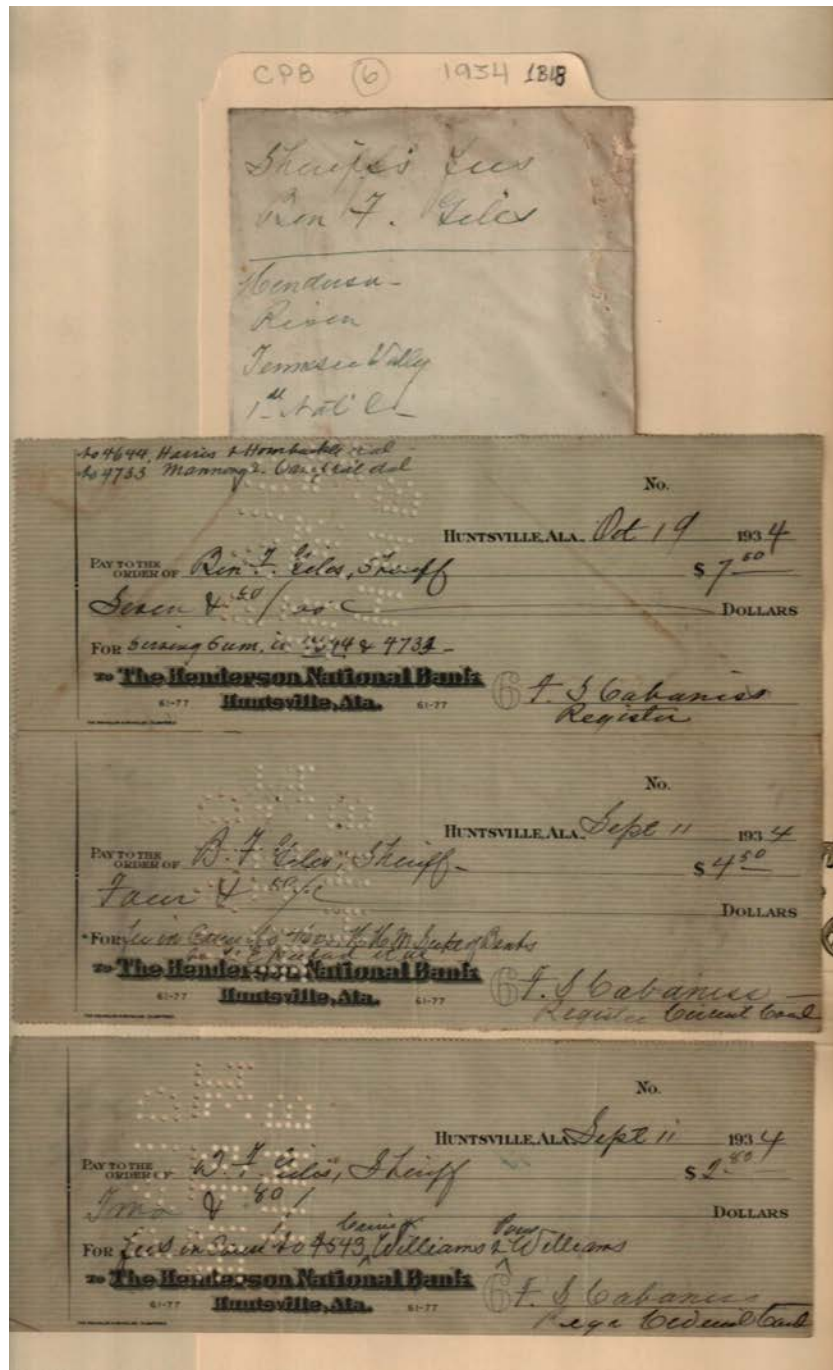 CPB 6 1934 1818
Sheriff's Fees
Ben F. Giles
Henderson
Risen
Tennessee Valley
1st Nat'l
No 4644, Harris & Hornbuckle et al
No 4733 Manning
No.
HUNTSVILLE, ALA. Oct 19 1934
PAY TO THE ORDER OF Ben F. Giles, Sheriff $7 50
Seven & 50/ DOLLARS
FOR Serving Sum, in 4644 & 4733
TO The Henderson National Bank
61-77 Huntsville, Ala. 61-77
6 F. S. Cabaniss
Register
No.
HUNTSVILLE, ALA. Sept 11 1934
PAY TO THE ORDER OF B. F. Giles, Sheriff $4 50
Four & 50/ DOLLARS
FOR Fee in Cause No of Banks
TO The Henderson National Bank
61-77 Huntsville, Ala. 61-77
6 F. S. Cabaniss
Register Circuit Court
No.
HUNTSVILLE, ALA. Sept 11 1934
PAY TO THE ORDER OF B. F. Giles, Sheriff $2 80
Two & 80/ DOLLARS
FOR Fees in Cause No 4543, Williams & Williams
TO The Henderson National Bank
61-77 Huntsville, Ala. 61-77
6 F. S. Cabaniss
Regr Circuit Court